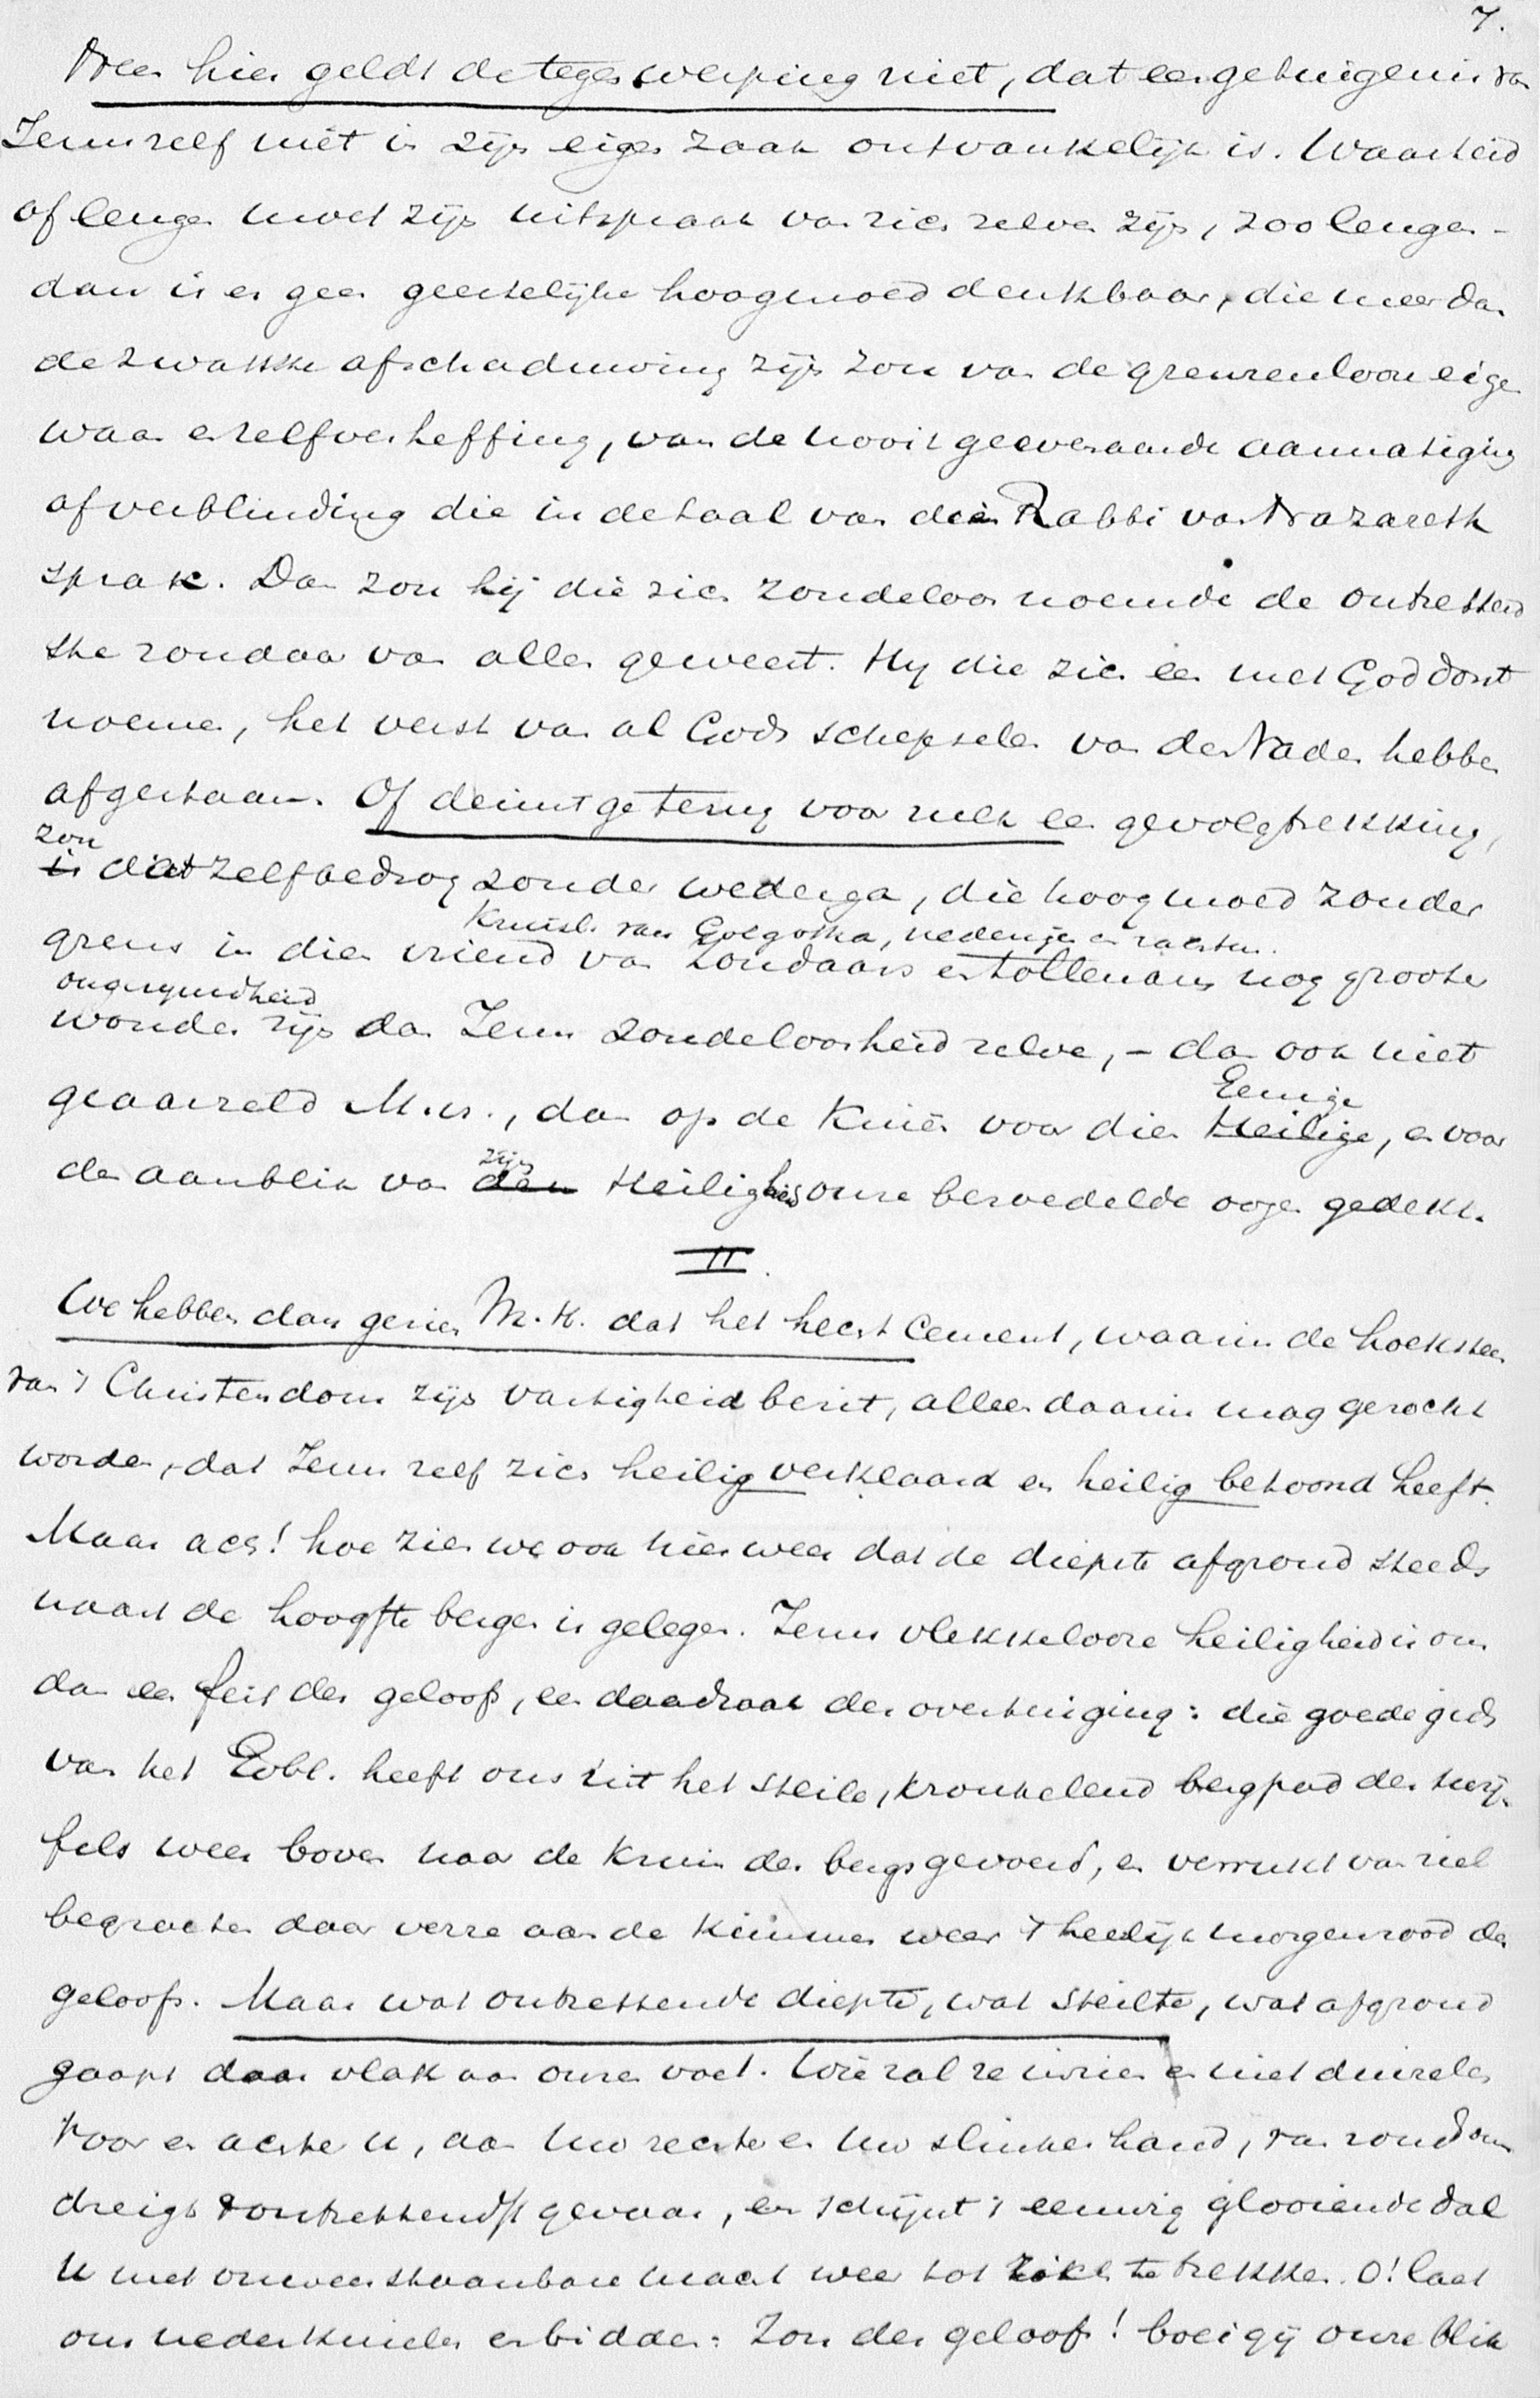 7.
Neen hier geldt de tegenwerping niet, dat een getuigenis van
Jezus zelf niet in zijn eigen zaak ontvankelijk is. Waarheid
of leugen moet zijn uitspraak van zich zelven zijn, zoo leugen -
dan is er geen geestelijke hoogmoed denkbaar, die meer dan
de zwakke afschaduwing zijn zou van de grenzenlooze eigen
waan en zelfverheffing, van de nooit geëvenaarde aanmatiging
of verblinding die in de taal van dien Rabbi van Nazareth
sprak. Dan zou hij die zich zondeloos noemde de ontzettend
ste zondaar van allen geweest. Hy die zich een met God dorst
noemen, het verst van al Gods schepselen van den Vader hebben
afgestaan. Of deinst ge terug voor zulk een gevolgtrekking,
zou
is dat zelfbedrog zonder wederga, die hoogmoed zonder
Kruisl. van Golgotha, nederige en zachtm.
grens in dien vriend van zondaars en tollenaars nog grooter
ongerymdheid
wonder zijn dan Jezus zondeloosheid zelve, - dan ook niet
Eenige
geaarzeld M.H., dan op de knieën voor dien Heilige, en voor
zijn
den aanblik van den Heiligheid onze bezoedelde oogen gedekt.
II.
We hebben dan gezien M.H. dat het hecht cement, waarin de hoeksteen
van 't Christendom zijn vastigheid bezit, alleen daarin mag gezocht
worden, dat Jezus zelf zich heilig verklaard en heilig betoond heeft.
Maar ach! hoe zien we ook hier weer dat de diepste afgrond steeds
naast de hoogste bergen is gelegen. Jezus vlekkelooze heiligheid is ons
dan een feit des geloofs, een daadzaak der overtuiging: die goede gids
van het Evbl. heeft ons uit het steile, kronkelend bergpad des twij-
fels weer boven naar de kruin des bergs gevoerd, en verrukt van ziel
begroeten daar verre aan de kimmen weer 't heerlijk morgenrood des
geloofs. Maar wat ontzettende diepte, wat steilte, wat afgrond
gaapt daar vlak aan onzen voet. Wie zal ze inzien en niet duizelen
Voor en achter u, aan uw rechter en uw slinker hand, van rondom
dreigt 't ontzettendst gevaar, en schijnt 't eeuwig glooiende dal
U met onweerstaanbare macht weer tot zich te trekken. O! laat
ons nederknielen en bidden: Zon des geloofs! boei gij onze blik